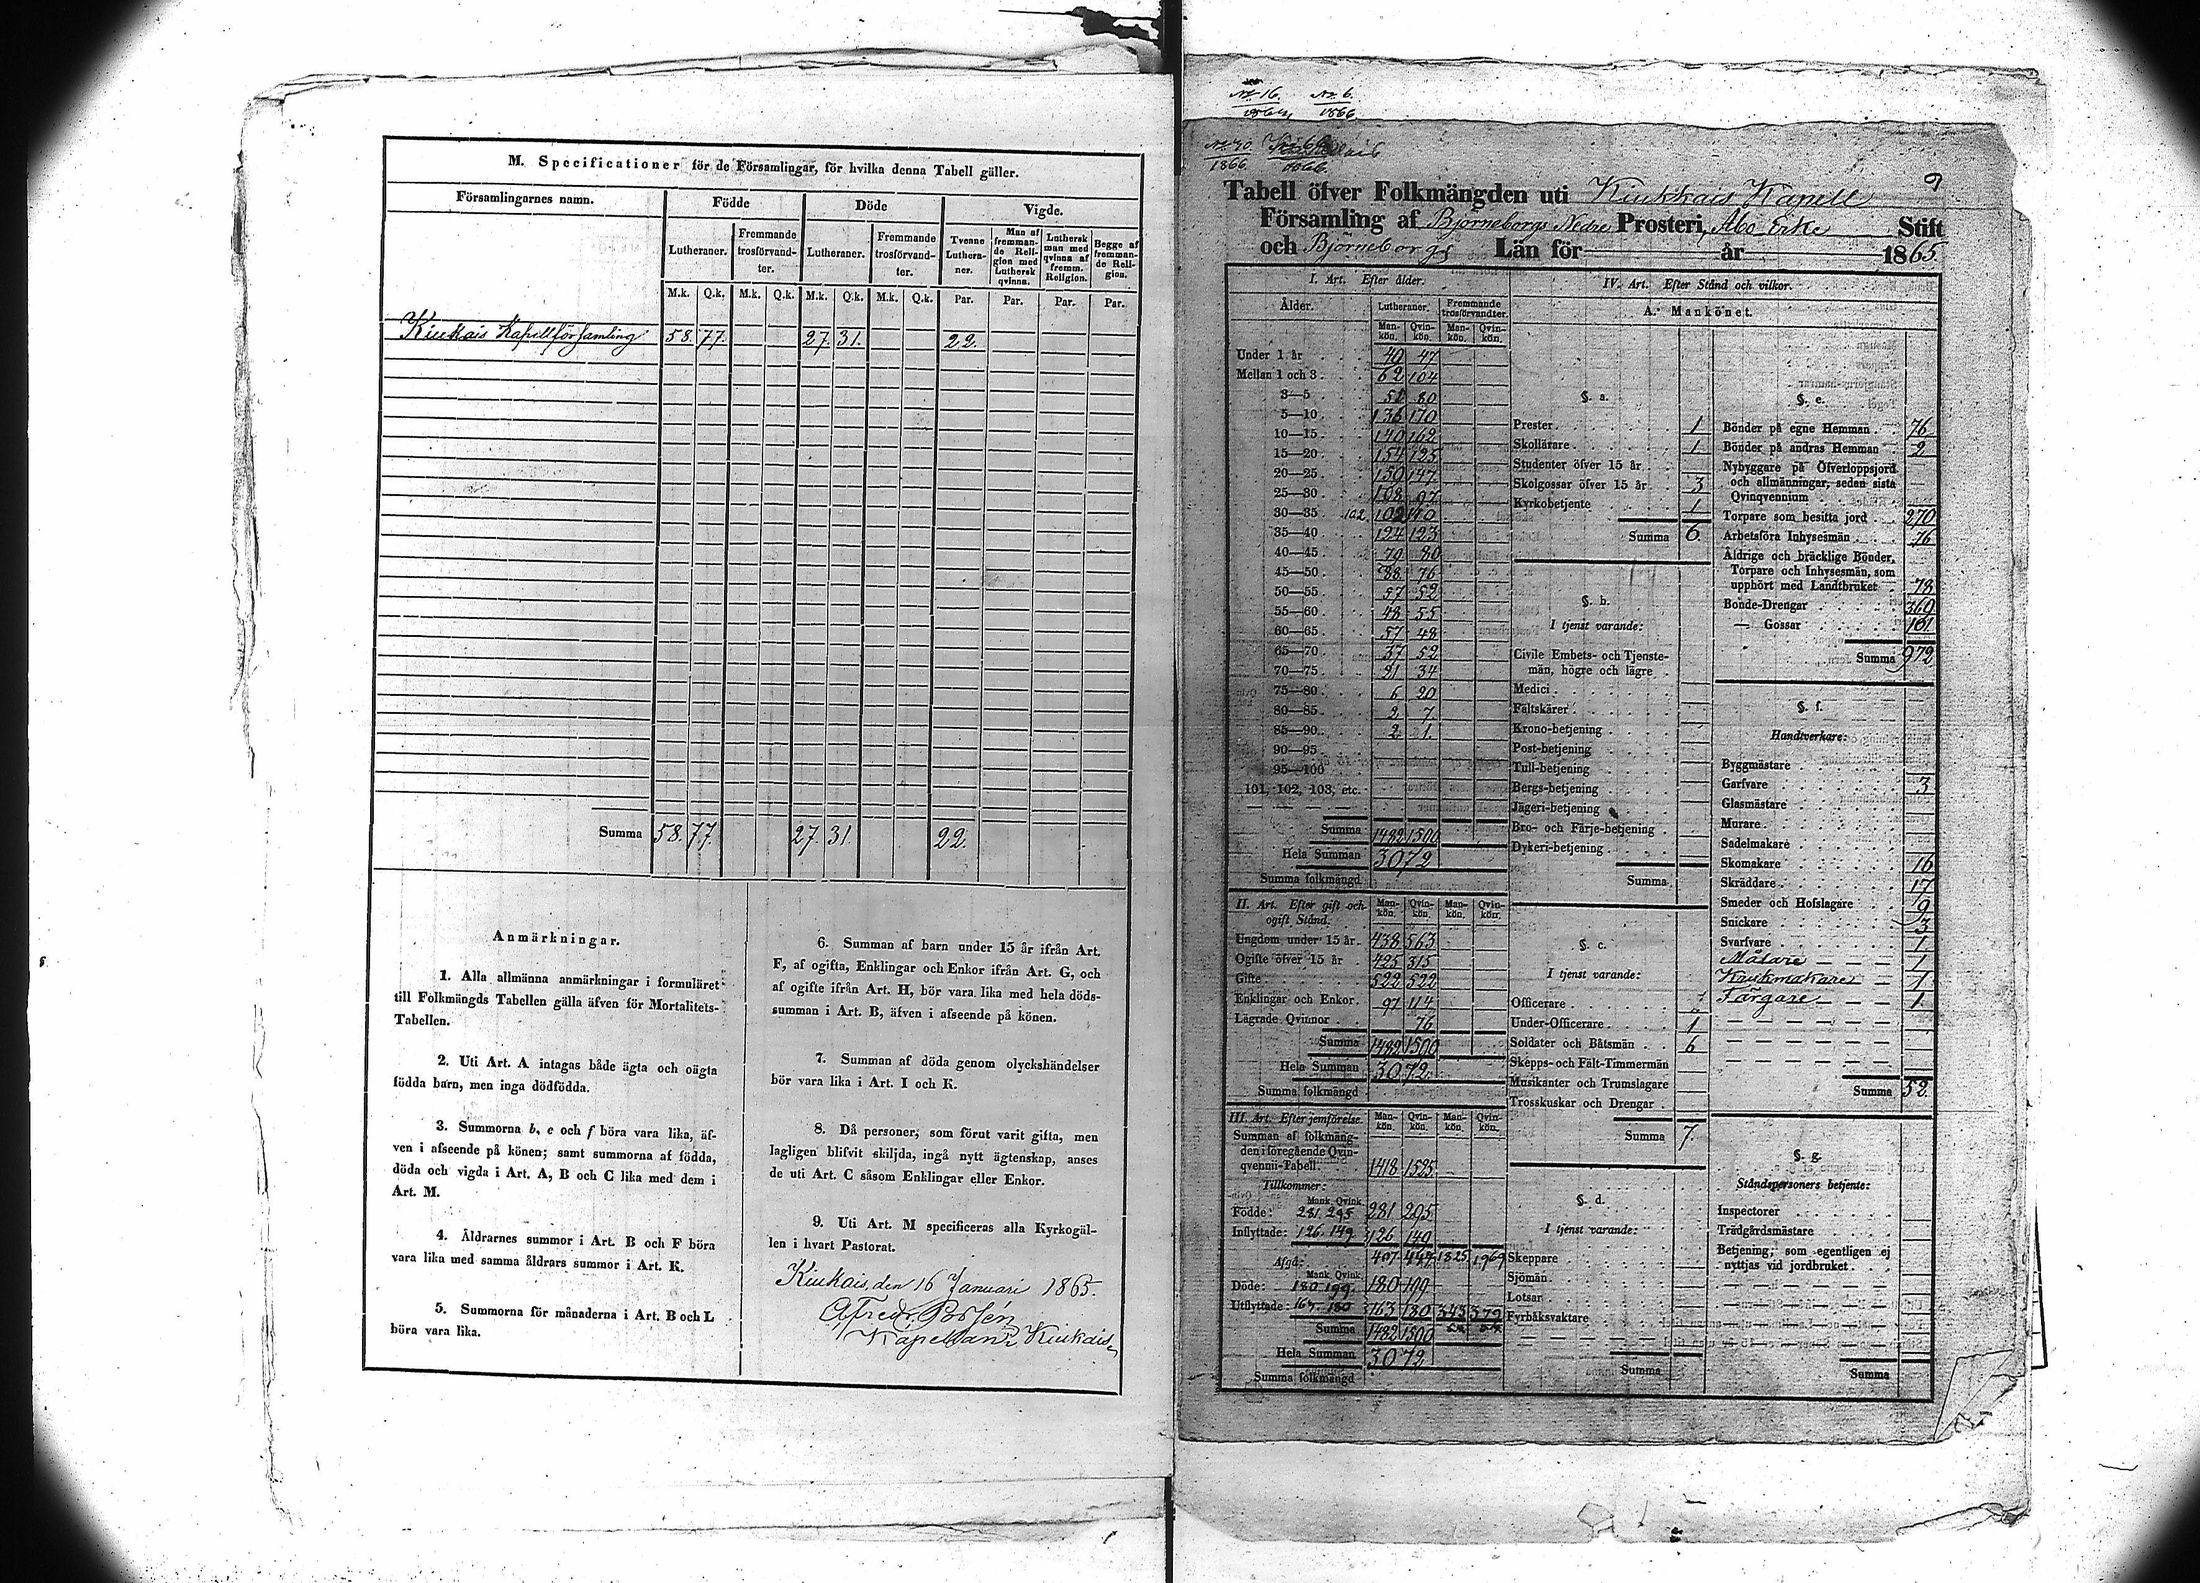 M. Specificationer för de Församlingar, för hvilka denna Tabell gäller.
Församlingarnes namn.
Födde
Döde
Vigde.
Lutheraner.
Fremmande trosförvand-ter.
Lutheraner.
Fremmande trosförvand-ter.
Tvenne Luthera-ner.
Man af fremman-de Reli-gion med Luthersk qvinna.
Luthersk man med qvinna af fremm. Religion.
Begge af fremman-de Reli-gion.
M.k. Q.k. M.k. Q.k. M.k. Q.k. M.k. Q.k. Par. Par. Par. Par.
Kiukais Kapellförsamling 58. 77. 27. 31. 22.
Summa 58. 77. 27. 31. 22.
Anmärkningar.
1. Alla allmänna anmärkningar i formuläret
till Folkmängds Tabellen gälla äfven för Mortalitets-
Tabellen.
2. Uti Art. A intagas både ägta och oägta
födda barn, men inga dödfödda.
3. Summorna b, c och f böra vara lika, äf-
ven i afseende på könen; samt summorna af födda,
döda och vigda i Art. A, B och C lika med dem i
Art. M.
4. Åldrarnes summor i Art. B och F böra
vara lika med samma åldrars summor i Art. K.
5. Summorna för månaderna i Art. B och L
böra vara lika.
6. Summan af barn under 15 år ifrån Art.
F, af ogifta, Enklingar och Enkor ifrån Art. G, och
af ogifte ifrån Art. H, bör vara lika med hela döds-
summan i Art. B, äfven i afseende på könen.
7. Summan af döda genom olyckshändelser
bör vara lika i Art. I och K.
8. Då personer, som förut varit gifta, men
lagligen blifvit skiljda, ingå nytt ägtenskap, anses
de uti Art. C såsom Enklingar eller Enkor.
9. Uti Art. M specificeras alla Kyrkogäl-
len i hvart Pastorat.
Kiukais, den 16 Januari 1865.
Kapellan i Kiukais
No 16. No 6.
1866
1866.
Tabell öfver Folkmängden uti Kiukkais Kapell 9
Församling af Björneborgs Nedre Prosteri, Åbo Erke Stift
och Björneborgs Län för år 1865.
I. Art. Efter ålder.
Ålder. Lutheraner. Fremmande trosförvandter.
Man-kön. Qvin-kön. Man-kön. Qvin-kön.
Under 1 år 40 47
Mellan 1 och 3 62 104
3—5 51 80
5—10 136 170
10—15 140 162
15—20 154 125
20—25 150 147
25—30 108 97
30—35 102 102 110
35—40 124 123
40—45 70 80
45—50 88 76
50—55 57 52
55—60 48 55
60—65 57 48
65—70 37 52
70—75 21 34
75—80 6 20
80—85 2 7.
85—90 2 1.
90—95
95—100
101, 102, 103, etc.
Summa 1482 1590
Hela Summan 3072
Summa folkmängd
II. Art. Efter gift och ogift Stånd.
Man-kön. Qvin-kön. Man-kön. Qvin-kön.
Ungdom under 15 år 438 563
Ogifte öfver 15 år 425 315
Gifte 522 522
Enklingar och Enkor. 97 114
Lägrade Qvinnor 76
Summa 1482 1590
Hela Summan 3072
Summa folkmängd
III. Art. Efter jemförelse.
Man-kön. Qvin-kön. Man-kön. Qvin-kön.
Summan af folkmäng-
den i föregående Qvin-
qvennii-Tabell 1418 1525
Tillkommer:
Mank. Qvink.
Födde: 281. 295 281 295
Inflyttade: 126. 149 126 149
Afgå: 407 444 1825 1969
Mank. Qvink.
Döde: 180. 199. 180 199
Utflyttade: 163. 180 163 180 343 379
Summa 1482 1590
Hela Summan 3072
Summa folkmängd
IV. Art. Efter Stånd och vilkor.
A. Mankönet.
§. a.
Prester 1
Skollärare 1
Studenter öfver 15 år
Skolgossar öfver 15 år 3
Kyrkobetjente 1
Summa 6.
§. b.
I tjenst varande:
Civile Embets- och Tjenste-
män, högre och lägre
Medici
Fältskärer
Krono-betjening
Post-betjening
Tull-betjening
Bergs-betjening
Jägeri-betjening
Bro- och Färje-betjening
Dykeri-betjening
Summa
§. c.
I tjenst varande:
Officerare
Under-Officerare 1
Soldater och Båtsmän 6
Skepps- och Fält-Timmermän
Musikanter och Trumslagare
Trosskuskar och Drengar
Summa 7.
§. d.
I tjenst varande:
Skeppare
Sjömän
Lotsar
Fyrbåksvaktare
Summa
§. e.
Bönder på egne Hemman 76
Bönder på andras Hemman 2
Nybyggare på Öfverloppsjord
och allmänningar, sedan sista
Qvinqvennium
Torpare som besitta jord 270
Arbetsföra Inhysesmän 76
Åldrige och bräcklige Bönder,
Torpare och Inhysesmän, som
upphört med Landtbruket 78
Bonde-Drengar 369
— Gossar 101
Summa 972
§. f.
Handtverkare:
Byggmästare
Garfvare 3
Glasmästare
Murare
Sadelmakare
Skomakare 16
Skräddare 17
Smeder och Hofslagare 9
Snickare 3
Svarfvare 1.
Målare 1
Krukmakare 1
Färgare 1.
Summa 52.
§. g.
Ståndspersoners betjente:
Inspectorer
Trädgårdsmästare
Betjening, som egentligen ej
nyttjas vid jordbruket
Summa